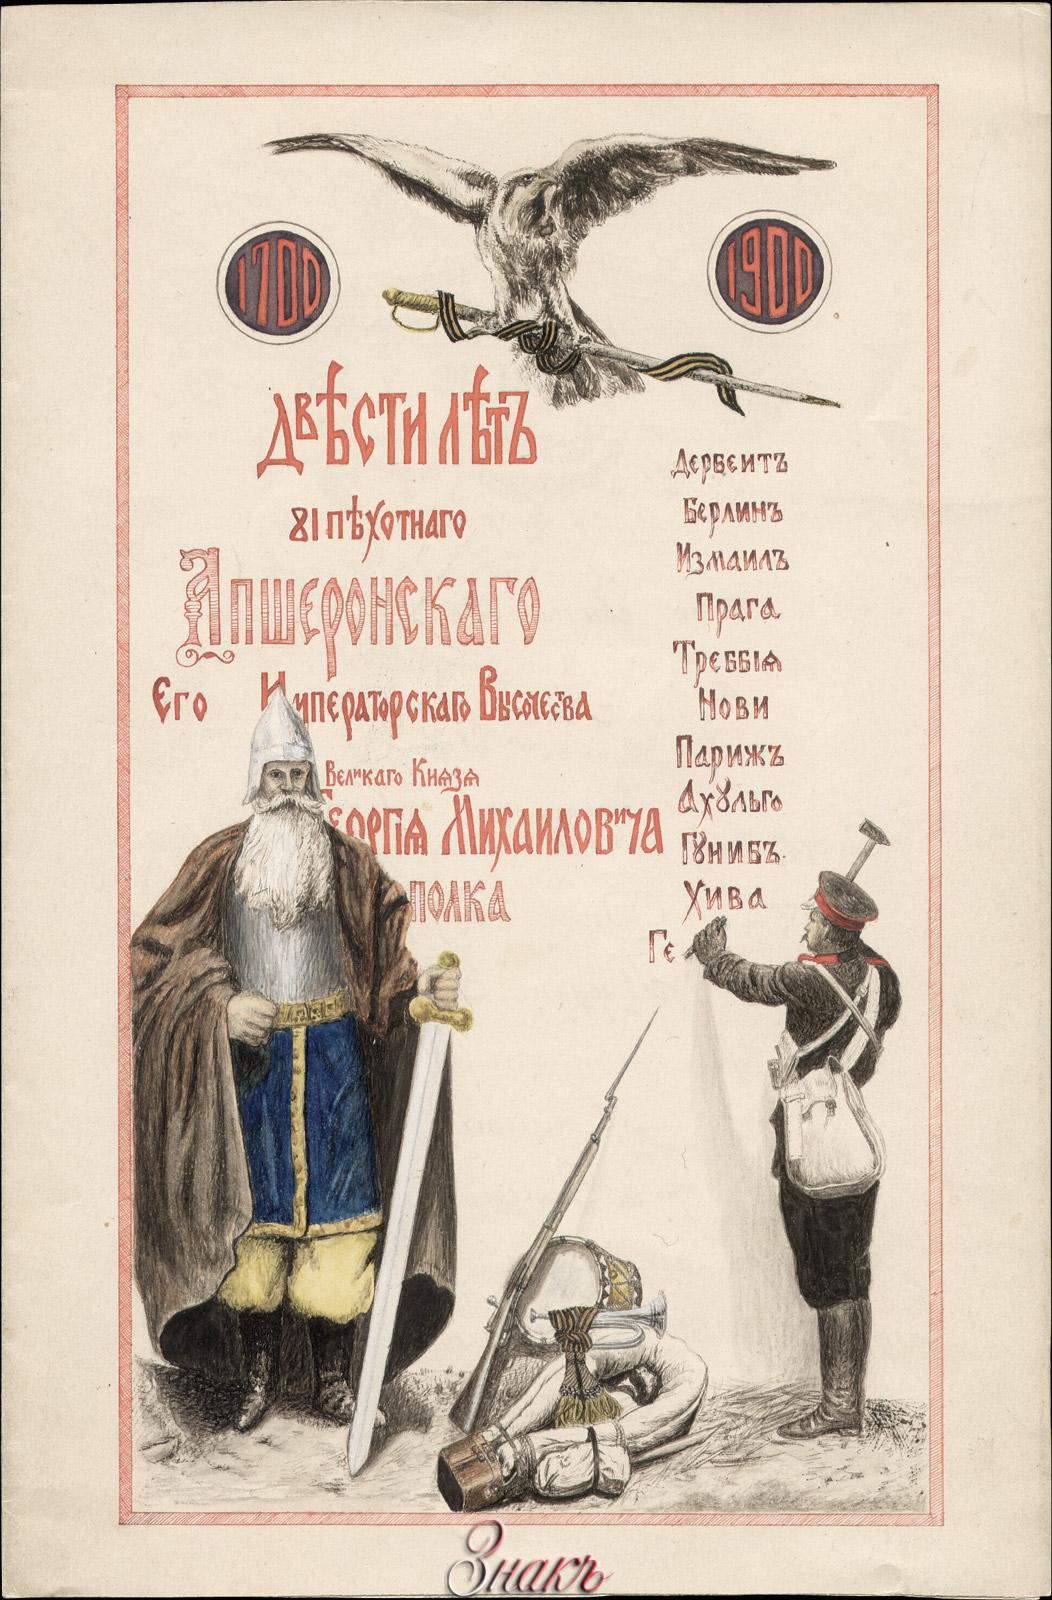 1700
1900
Двѣсти лѣтъ
81 пѣхотнаго
Апшеронскаго
Его Императорскаго Высочества
Великаго Князя
Георгiя Михаиловича
полка
Дербентъ
Берлинъ
Измаилъ
Прага
Треббiя
Нови
Парижъ
Ахульго
Гунибъ
Хива
Ге
Знакъ